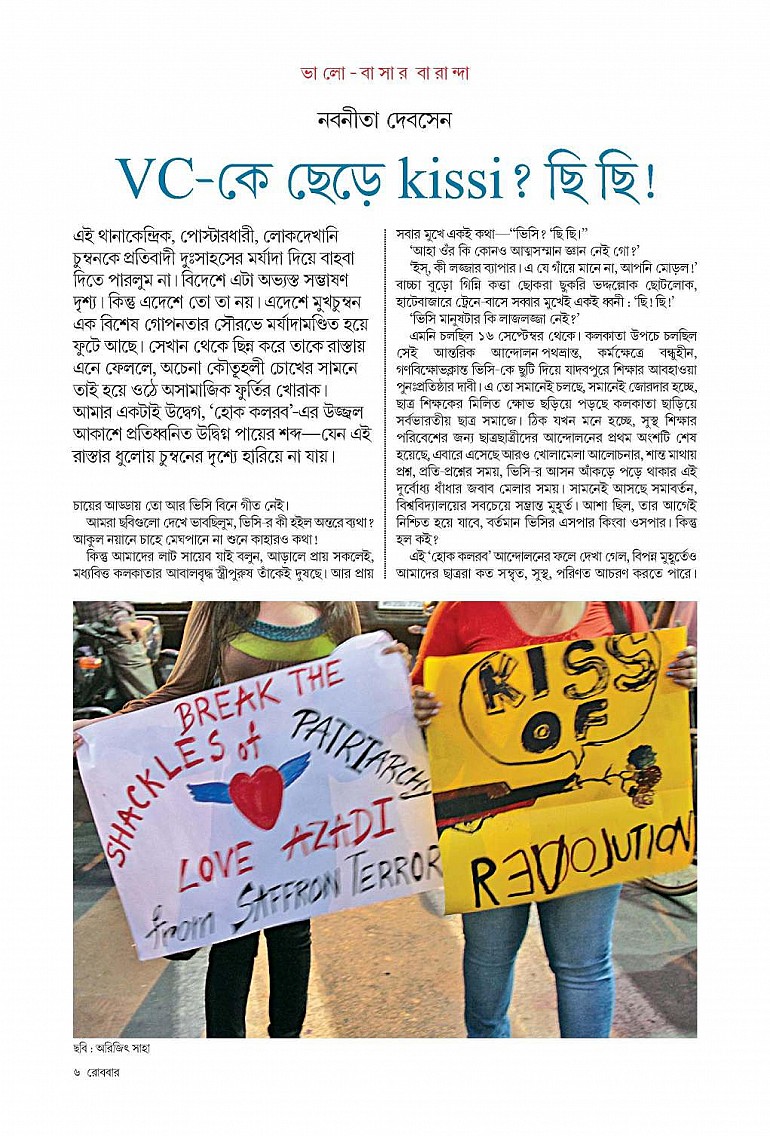 ভালো-বাসার বারান্দা
নবনীতা দেবসেন
VC-কে ছেড়ে kissi? ছি ছি!
এই থানাকেন্দ্রিক, পোস্টারধারী, লোকদেখানি
চুম্বনকে প্রতিবাদী দুঃসাহসের মর্যাদা দিয়ে বাহবা
দিতে পারলুম না। বিদেশে এটা অভ্যস্ত সম্ভাষণ
দৃশ্য। কিন্তু এদেশে তো তা নয়। এদেশে মুখচুম্বন
এক বিশেষ গোপনতার সৌরভে মর্যাদামণ্ডিত হয়ে
ফুটে আছে। সেখান থেকে ছিন্ন করে তাকে রাস্তায়
এনে ফেললে, অচেনা কৌতূহলী চোখের সামনে
তাই হয়ে ওঠে অসামাজিক ফুর্তির খোরাক।
আমার একটাই উদ্বেগ, ‘হোক কলরব’-এর উজ্জ্বল
আকাশে প্রতিধ্বনিত উদ্বিগ্ন পায়ের শব্দ—যেন এই
রাস্তার ধুলোয় চুম্বনের দৃশ্যে হারিয়ে না যায়।
চায়ের আড্ডায় তো আর ভিসি বিনে গীত নেই।
আমরা ছবিগুলো দেখে ভাবছিলুম, ভিসি-র কী হইল অন্তরে ব্যথা?
আকুল নয়ানে চাহে মেঘপানে না শুনে কাহারও কথা!
কিন্তু আমাদের লাট সায়েব যাই বলুন, আড়ালে প্রায় সকলেই,
মধ্যবিত্ত কলকাতার আবালবৃদ্ধ স্ত্রীপুরুষ তাঁকেই দুষছে। আর প্রায়
সবার মুখে একই কথা—“ভিসি? ‘ছি ছি।”
‘আহা ওঁর কি কোনও আত্মসম্মান জ্ঞান নেই গো?’
‘ইস্, কী লজ্জার ব্যাপার। এ যে গাঁয়ে মানে না, আপনি মোড়ল!’
বাচ্চা বুড়ো গিন্নি কত্তা ছোকরা ছুকরি ভদ্দল্লোক ছোটলোক,
হাটেবাজারে ট্রেনে-বাসে সব্বার মুখেই একই ধ্বনী : ‘ছি! ছি!’
‘ভিসি মানুষটার কি লাজলজ্জা নেই?’
এমনি চলছিল ১৬ সেপ্টেম্বর থেকে। কলকাতা উপচে চলছিল
সেই আন্তরিক আন্দোলন-পথভ্রান্ত, কর্মক্ষেত্রে বন্ধুহীন,
গণবিক্ষোভক্লান্ত ভিসি-কে ছুটি দিয়ে যাদবপুরে শিক্ষার আবহাওয়া
পুনঃপ্রতিষ্ঠার দাবী। এ তো সমানেই চলছে, সমানেই জোরদার হচ্ছে,
ছাত্র শিক্ষকের মিলিত ক্ষোভ ছড়িয়ে পড়ছে কলকাতা ছাড়িয়ে
সর্বভারতীয় ছাত্র সমাজে। ঠিক যখন মনে হচ্ছে, সুস্থ শিক্ষার
পরিবেশের জন্য ছাত্রছাত্রীদের আন্দোলনের প্রথম অংশটি শেষ
হয়েছে, এবারে এসেছে আরও খোলামেলা আলোচনার, শান্ত মাথায়
প্রশ্ন, প্রতি-প্রশ্নের সময়, ভিসি-র আসন আঁকড়ে পড়ে থাকার এই
দুর্বোধ্য ধাঁধার জবাব মেলার সময়। সামনেই আসছে সমাবর্তন,
বিশ্ববিদ্যালয়ের সবচেয়ে সম্ভ্রান্ত মুহূর্ত। আশা ছিল, তার আগেই
নিশ্চিত হয়ে যাবে, বর্তমান ভিসির এসপার কিংবা ওসপার। কিন্তু
হল কই?
এই ‘হোক কলরব’ আন্দোলনের ফলে দেখা গেল, বিপন্ন মুহূর্তেও
আমাদের ছাত্ররা কত সম্বৃত, সুস্থ, পরিণত আচরণ করতে পারে।
BREAK THE
SHACKLES of
PATRIARCHY
LOVE AZADI
from SAFFRON TERROR
KISS
OF
REVOLUTION
ছবি : অরিজিৎ সাহা
৬ রোববার